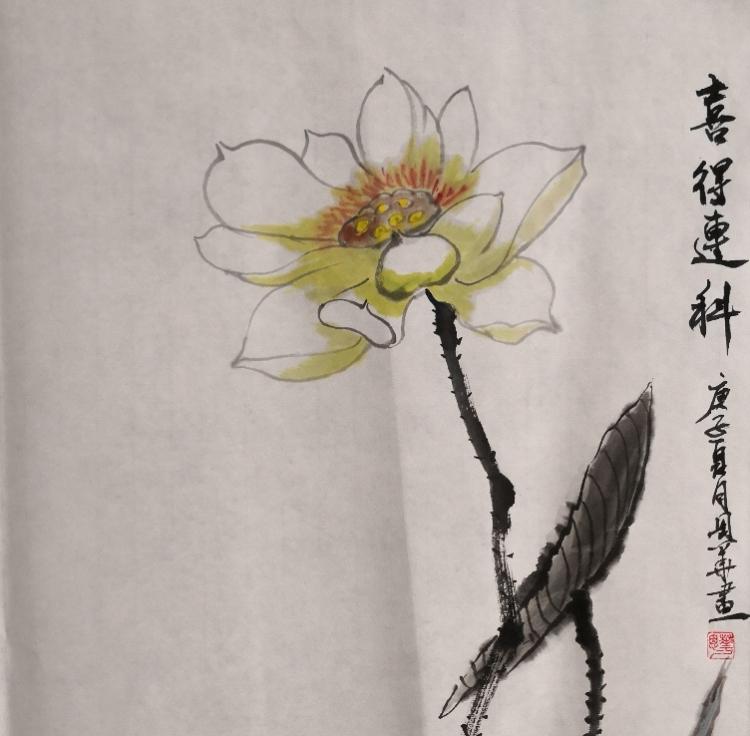 喜得連科
庚子夏月思華畫